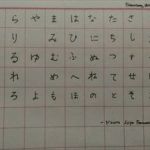 ら や ま は な た さ
り み ひ に ち し
る ゆ む ふ ぬ つ す
れ め へ ね て せ
ろ よ も ほ の と そ